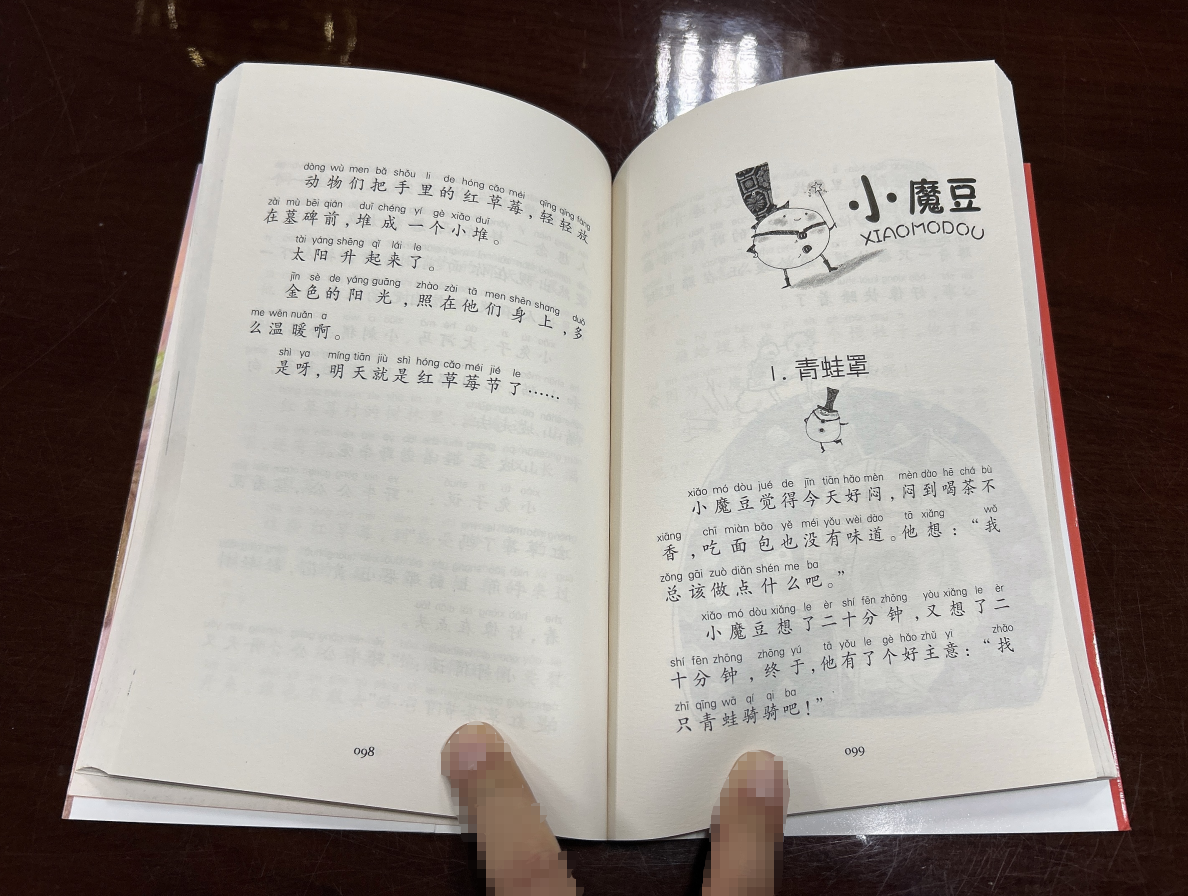 dòng wù men bǎ shǒu li de hóng cǎo méi qīng qīng fàng
动物们把手里的红草莓,轻轻放
zài mù bēi qián duī chéng yí gè xiǎo duī
在墓碑前,堆成一个小堆。
tài yáng shēng qǐ lái le
太阳升起来了。
jīn sè de yáng guāng zhào zài tā men shēn shang duō
金色的阳光,照在他们身上,多
me wēn nuǎn a
么温暖啊。
shì ya míng tiān jiù shì hóng cǎo méi jié le
是呀,明天就是红草莓节了……
098
小魔豆
XIAOMODOU
1. 青蛙罩
xiǎo mó dòu jué de jīn tiān hǎo mèn mèn dào hē chá bù
小魔豆觉得今天好闷,闷到喝茶不
xiāng chī miàn bāo yě méi yǒu wèi dào tā xiǎng wǒ
香,吃面包也没有味道。他想:“我
zǒng gāi zuò diǎn shén me ba
总该做点什么吧。”
xiǎo mó dòu xiǎng le èr shí fēn zhōng yòu xiǎng le èr
小魔豆想了二十分钟,又想了二
shí fēn zhōng zhōng yú tā yǒu le gè hǎo zhǔ yi zhǎo
十分钟,终于,他有了个好主意:“找
zhī qīng wā qí qi ba
只青蛙骑骑吧!”
099